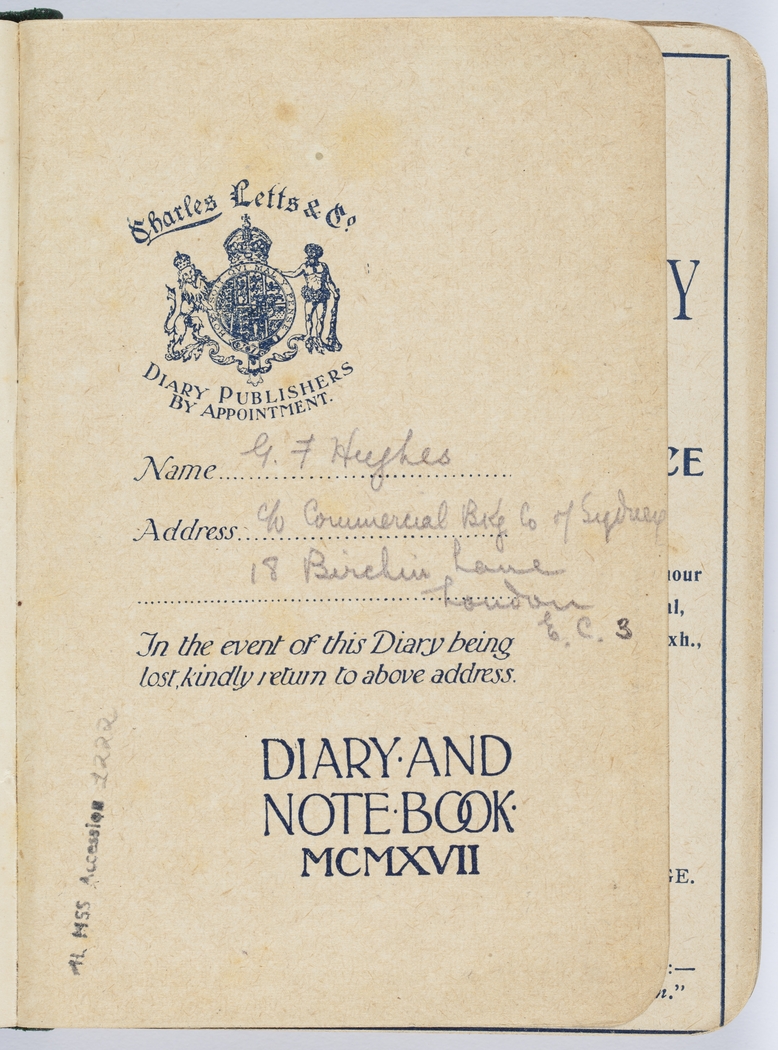 Charles Letts & Co.
DIARY PUBLISHERS
BY APPOINTMENT.
Name G. F Hughes
Address c/o Commercial Bkg Co of Sydney
18 Birchin Lane
London
E. C. 3
In the event of this Diary being
lost, kindly return to above address.
DIARY·AND
NOTE·BOOK·
MCMXVII
ML MSS Accession 1222
Y
CE
our
al,
xh.,
GE.
:—
n."